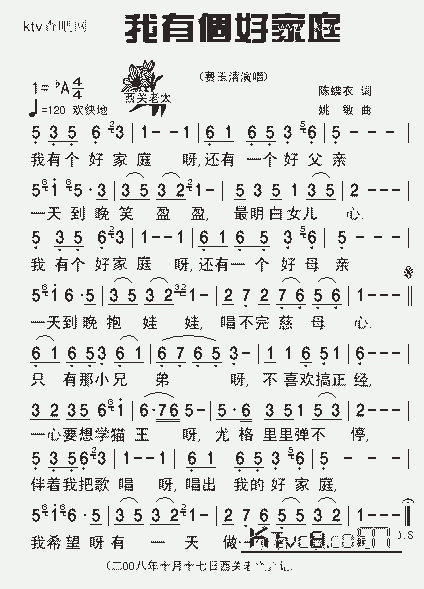 ktv香吧网
我有個好家庭
(费玉清演唱)
1=♭A 4/4
♩=120 欢快地
西关老太
陈蝶衣 词
姚敏 曲
5 3 5 6 3 | 1 - - 1 | 6 1 6 5 3 6 | 5 - - - |
我有个好家庭 呀,还有一个好父亲
5 1 5 · 3 | 3 5 3 2 1 - | 5 3 5 1 3 5 | 2 - - - |
一天到晚笑盈盈, 最明白女儿心.
5 3 5 6 3 | 1 - - 1 | 6 1 6 5 3 6 | 5 - - - |
我有个好家庭 呀,还有一个好母亲
5 1 6 · 5 | 3 5 3 2 1 - | 2 7 2 7 6 5 6 | 1 - - - ||
一天到晚抱娃娃, 唱不完慈母心.
6 1 6 5 3 6 1 | 6 7 6 5 3 - | 1 1 6 5 1 | 6 - - - |
只有那小兄弟 呀, 不喜欢搞正经,
3 2 3 5 6 1 | 6 · 7 6 5 - | 5 · 6 3 5 1 5 3 | 2 - - - |
一心要想学猫王 呀, 尤格里里弹不停,
5 3 5 6 3 | 1 - - 1 | 6 1 6 5 3 6 | 5 - - - |
伴着我把歌唱 呀, 唱出我的好家庭,
5 1 6 · 5 | 3 5 3 2 1 -
我希望呀有一天 做一
KTvc8.com
D.S
(二00八年十月十七日西关老